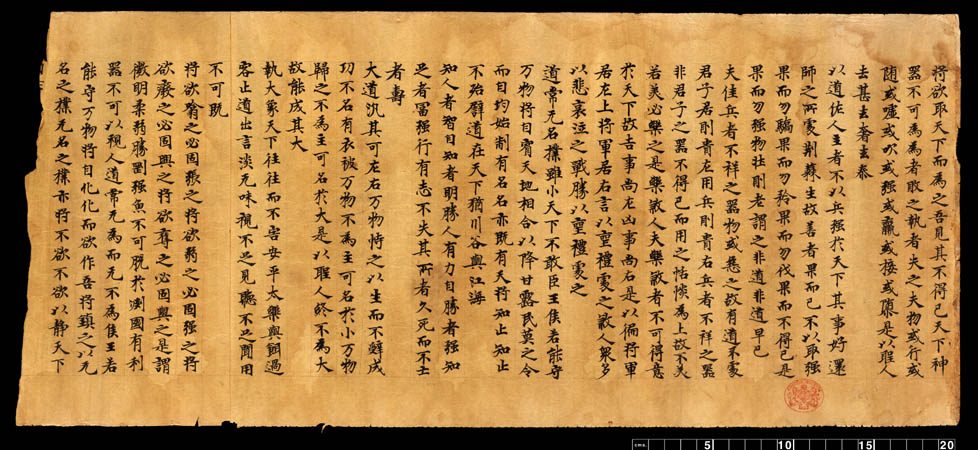 將欲取天下而為之吾見其不得已天下神
器不可為為者敗之執者失之夫物或行或
隨或噓或吹或強或羸或接或隳是以聖人
去甚去奢去泰
以道佐人主者不以兵強於天下其事好還
師之所處荊棘生故善者果而已不以取強
果而勿驕果而勿矜果而勿伐果而不得已是
果而勿強物壯則老謂之非道非道早已
夫佳兵者不祥之器物或惡之故有道不處
君子居則貴左用兵則貴右兵者不祥之器
非君子之器不得已而用之恬惔為上故不美
若美必樂之是樂煞人夫樂煞者不可得意
於天下故吉事尚左凶事尚右是以偏將軍
居左上將軍居右言以喪禮處之煞人眾多
以悲哀泣之戰勝以喪禮處之
道常无名樸雖小天下不敢臣王侯若能守
万物將自賓天地相合以降甘露民莫之令
而自均始制有名名亦既有天將知止知止
不殆譬道在天下猶川谷與江海
知人者智自知者明勝人有力自勝者強知
足者富強行有志不失其所者久死而不亡
者壽
大道汎其可左右万物恃之以生而不辭成
功不名有衣被万物不為主可名於小万物
歸之不為主可名於大是以聖人終不為大
故能成其大
執大象天下往往而不害安平太樂與餌過
客止道出言淡无味視不足見聽不足聞用
不可既
將欲翕之必固張之將欲弱之必固強之將
欲廢之必固興之將欲奪之必固與之是謂
微明柔弱勝剛強魚不可脫於淵國有利
器不可以視人道常无為而无不為侯王若
能守万物將自化化而欲作吾將鎮之以无
名之樸无名之樸亦將不欲不欲以靜天下
cms. 5 10 15 20